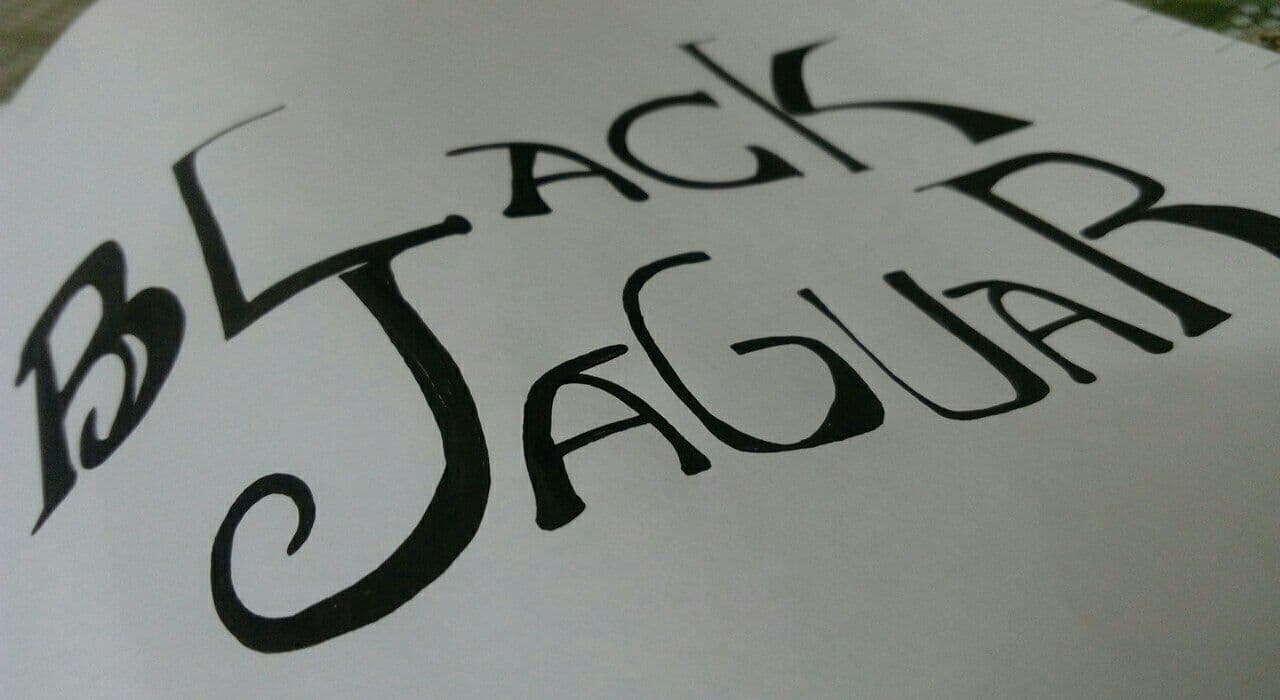 BLACK
JAGUAR